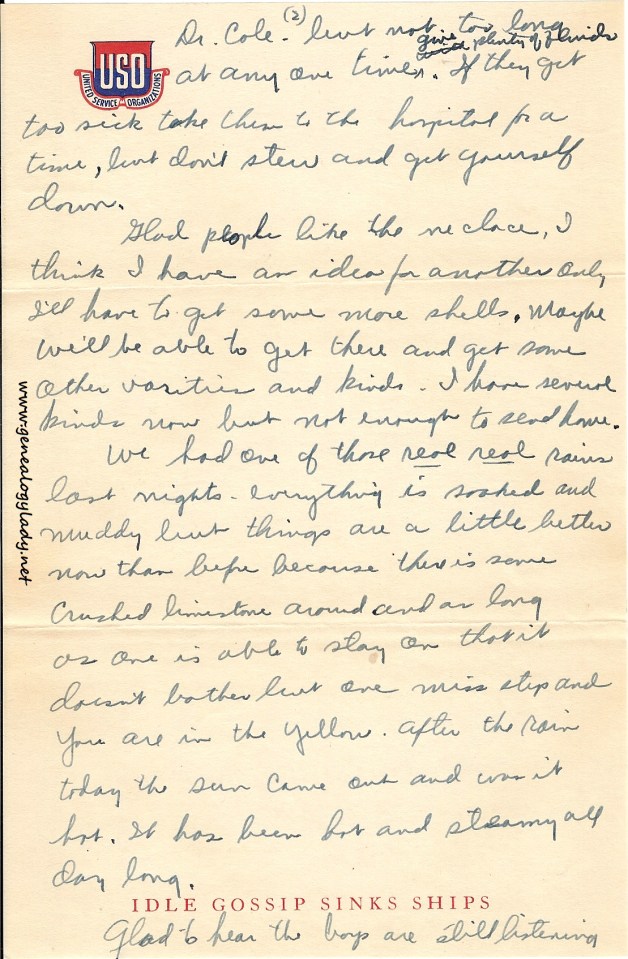 (2)
USO
UNITED SERVICE ORGANIZATIONS
Dr. Cole - but not too long
give plenty of fluids
at any one time. If they get
too sick take them to the hospital for a
time, but don't stew and get yourself
down.
Glad people like the neclace, I
think I have an idea for another only
I'll have to get some more shells. Maybe
we'll be able to get there and get some
other varities and kinds - I have several
kinds now but not enough to send home.
We had one of those real real rains
last nights - everything is soaked and
muddy but things are a little better
now than before because there is some
crushed limestone around and as long
as one is able to stay on that it
doesn't bother but one miss step and
you are in the yellow. After the rain
today the sun came out and was it
hot. It has been hot and steamy all
day long.
Glad to hear the boys are still listening
IDLE GOSSIP SINKS SHIPS
www.genealogylady.net